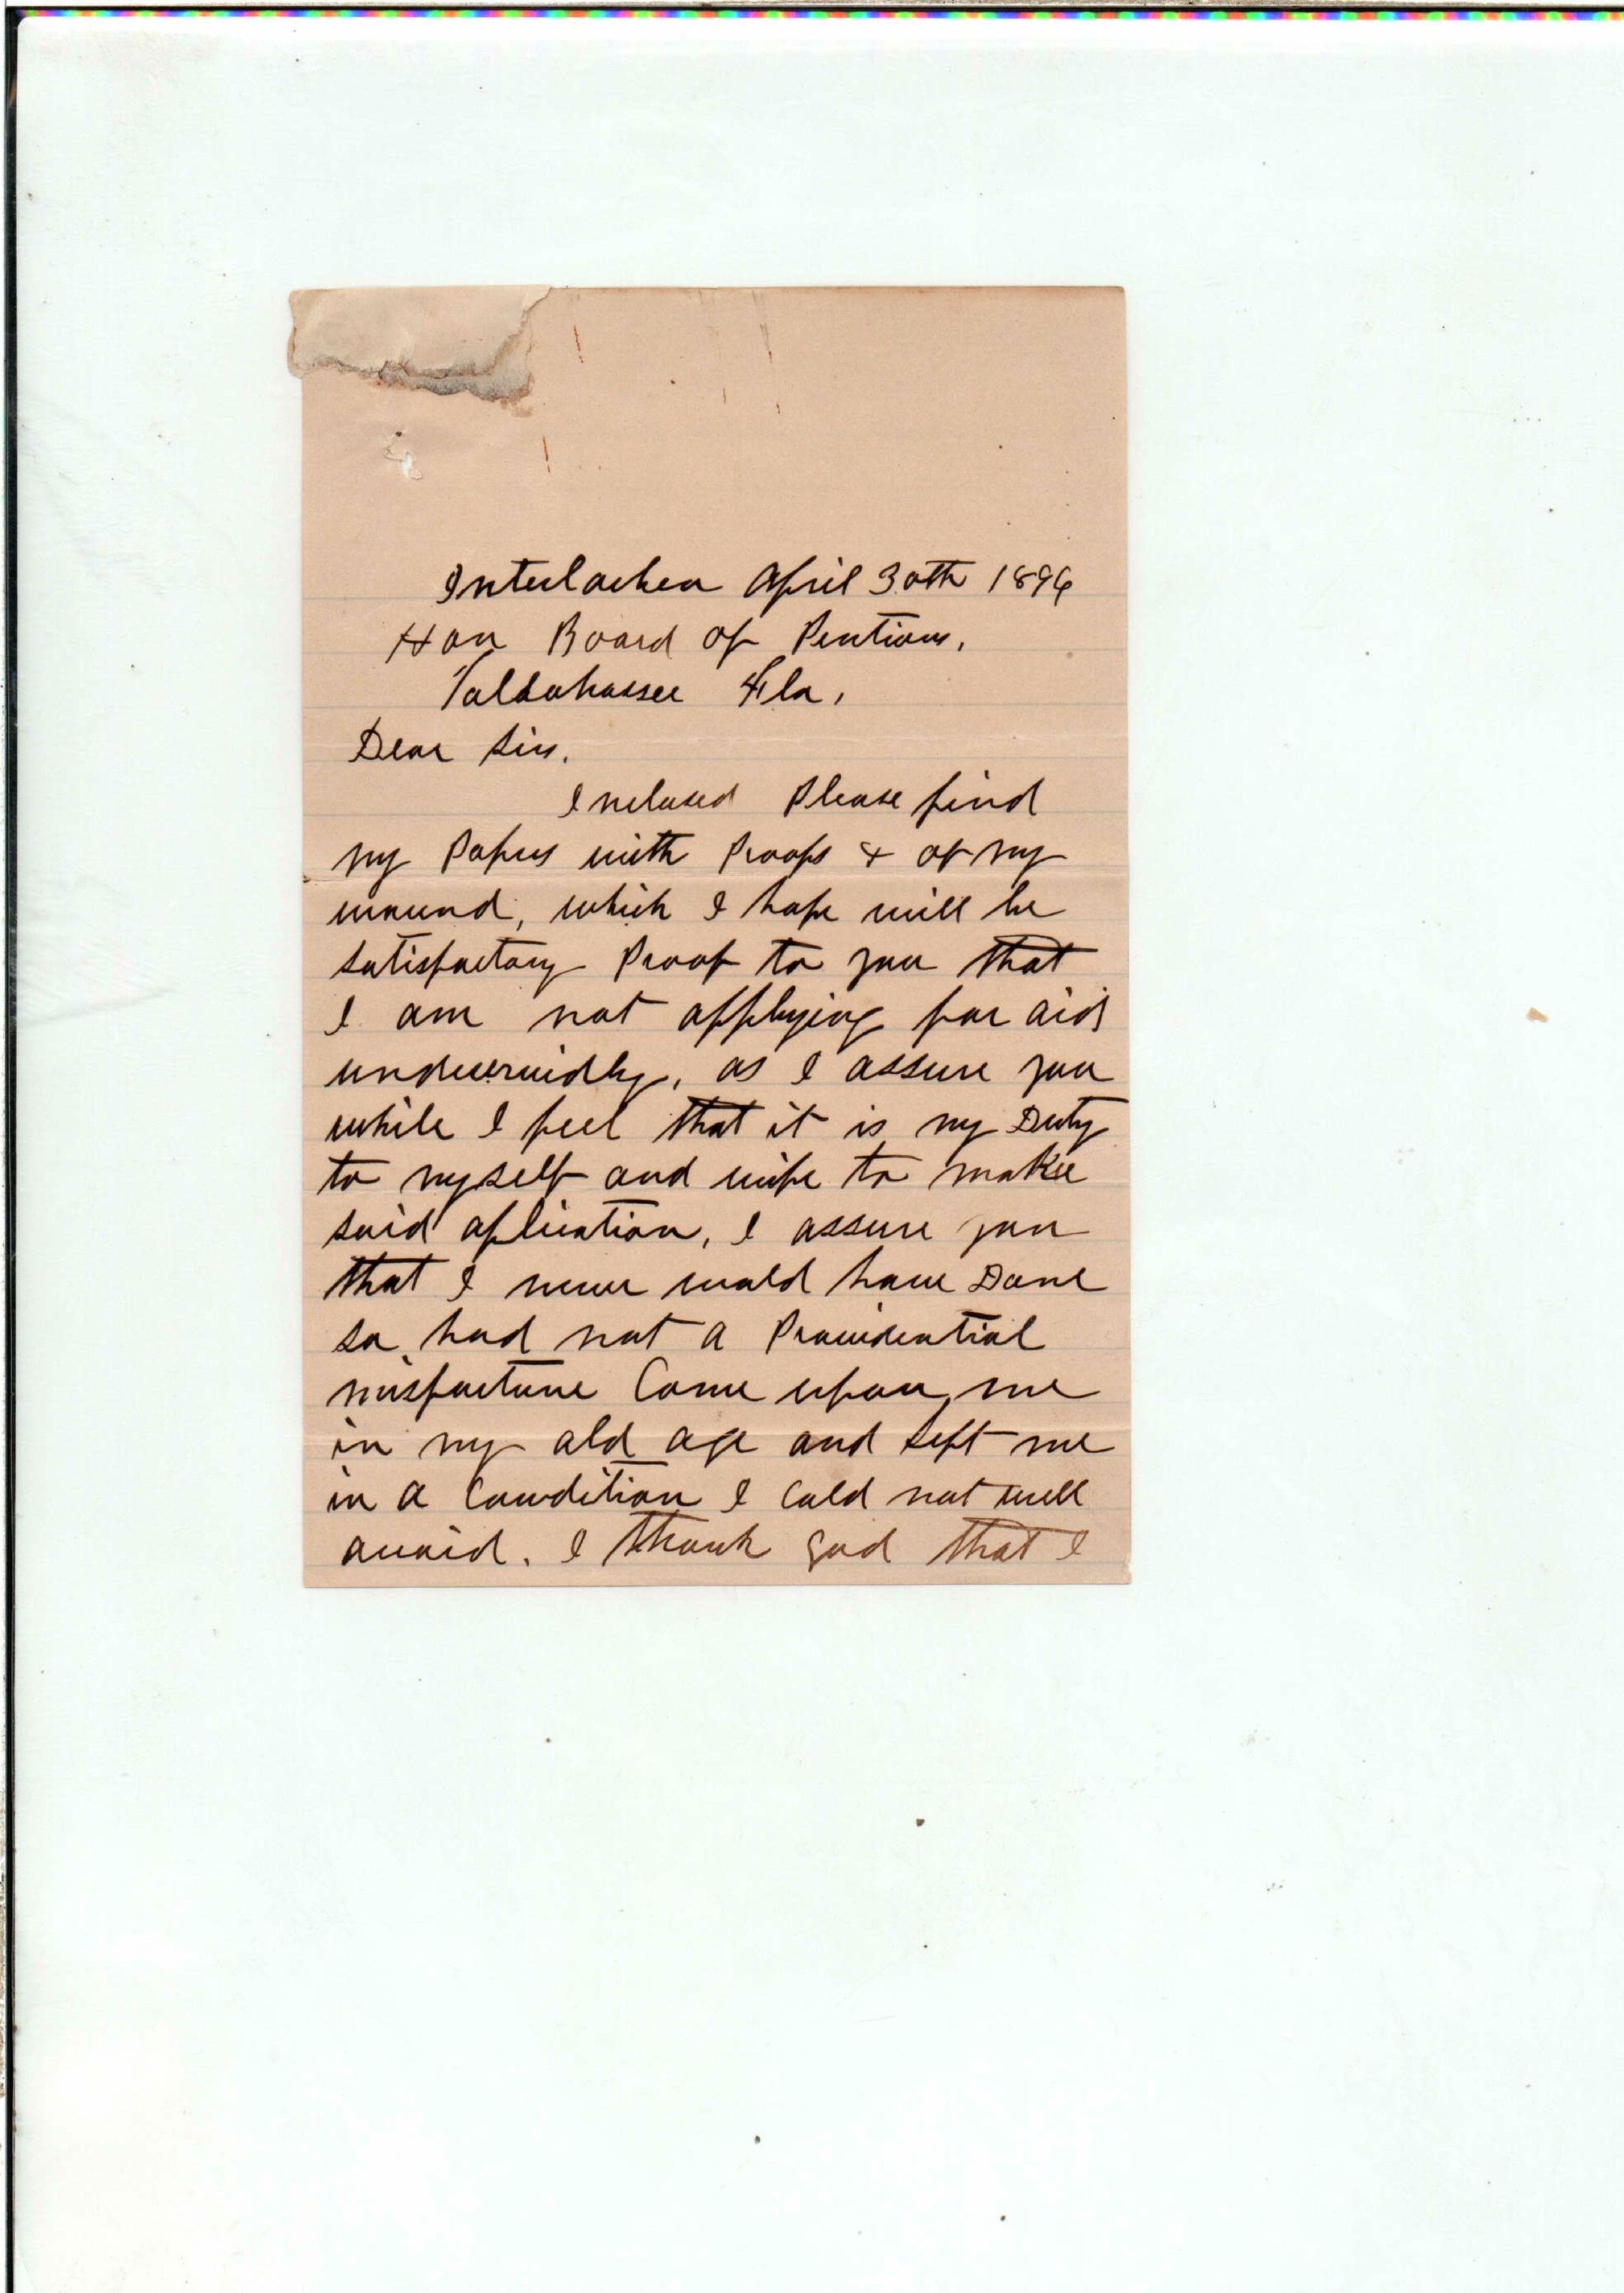 Interlachen April 30th 1896
Hon Board of Pentions,
Tallahassee Fla,
Dear Sirs,
Inclosed Please find
my Papers with Proofs & of my
wound, which I hope will be
satisfactory Proof to you that
I am not applying for aid
undeservidly, as I assure you
while I feel that it is my Duty
to myself and wife to make
said aplication, I assure you
that I never would have Done
so, had not a Providential
misfortune Come upon me
in my old age and left me
in a Condition I Cold not well
avoid. I thank god that I